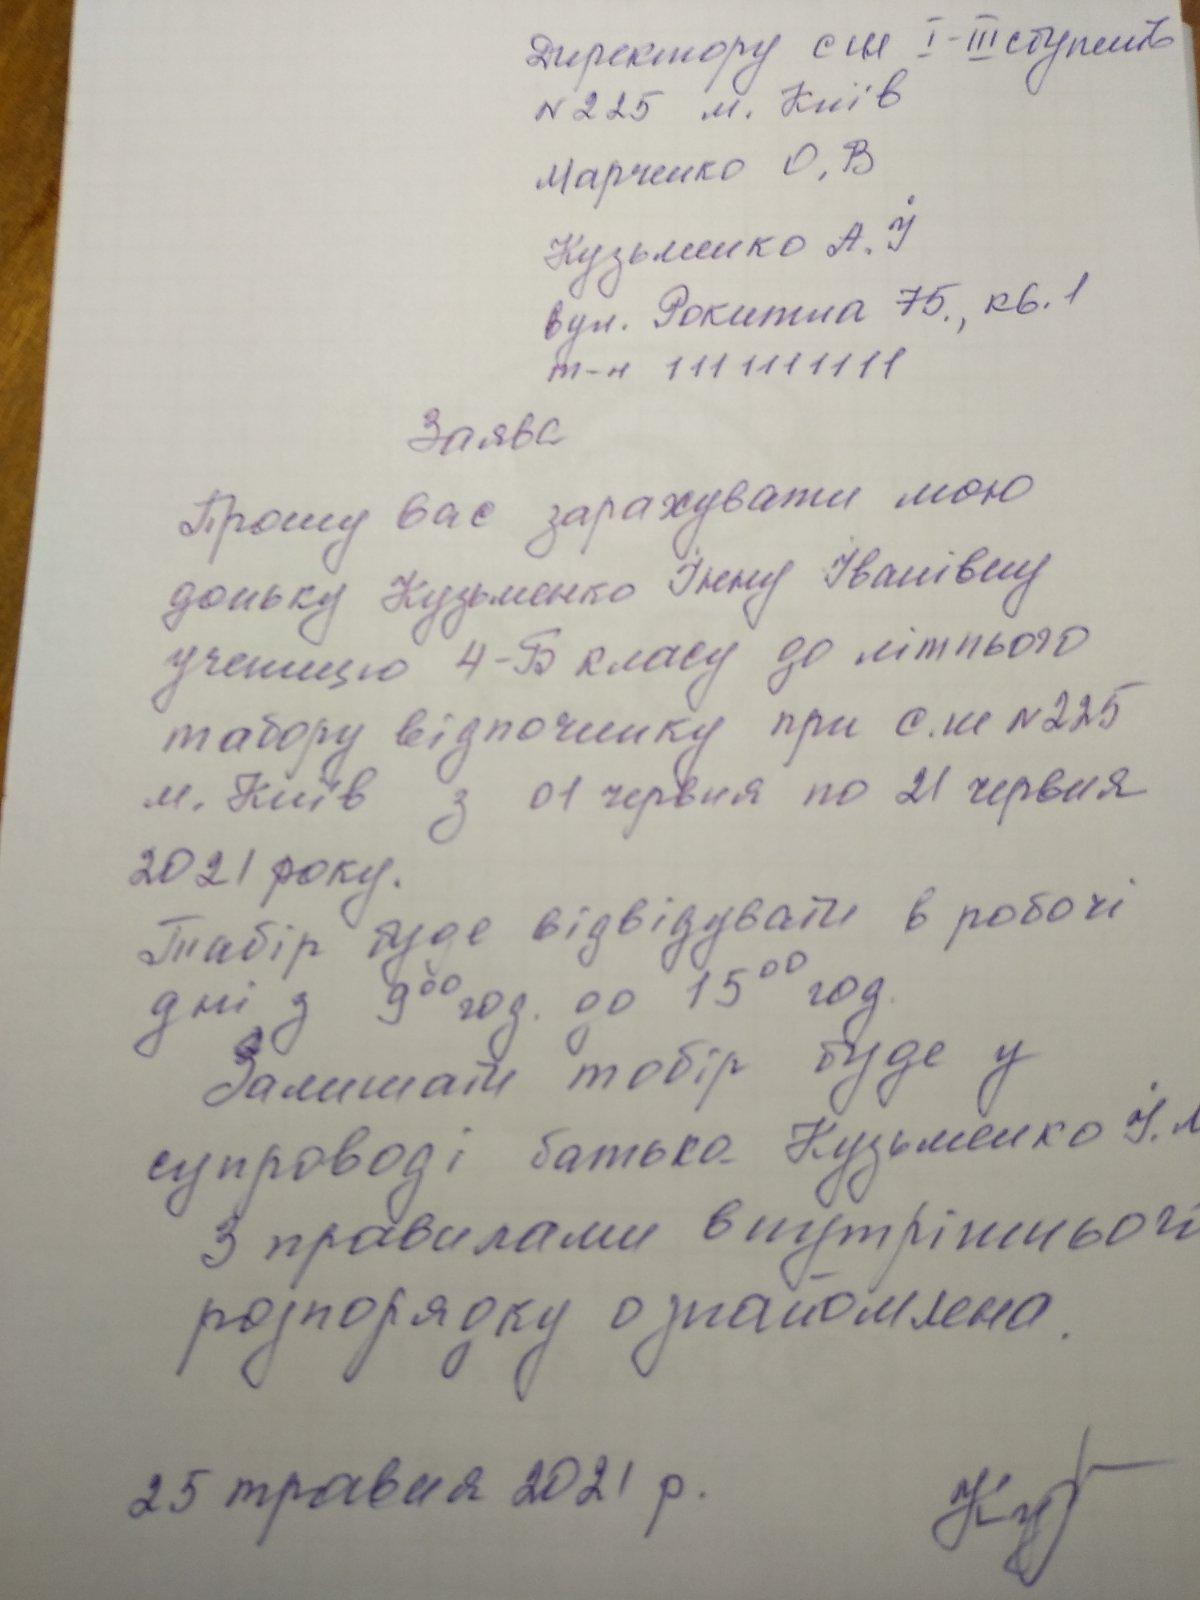 Директору сш I-III ступенів
N225 м. Київ
Марченко О, В
Кузьменко А. І
вул. Рокитна 75., кв. 1
т-н 1111111111
Заява
Прошу вас зарахувати мою
доньку Кузьменко Інну Іванівну
ученицю 4-Б класу до літнього
табору відпочинку при с.ш N225
м. Київ з 01 червня по 21 червня
2021 року.
Табір буде відвідувати в робочі
дні з 9⁰⁰ год. до 15⁰⁰ год.
Залишати тобір буде у
супроводі батька Кузьменко І.
З правилами внутрішнього
розпорядку ознайомлена.
25 травня 2021 р.